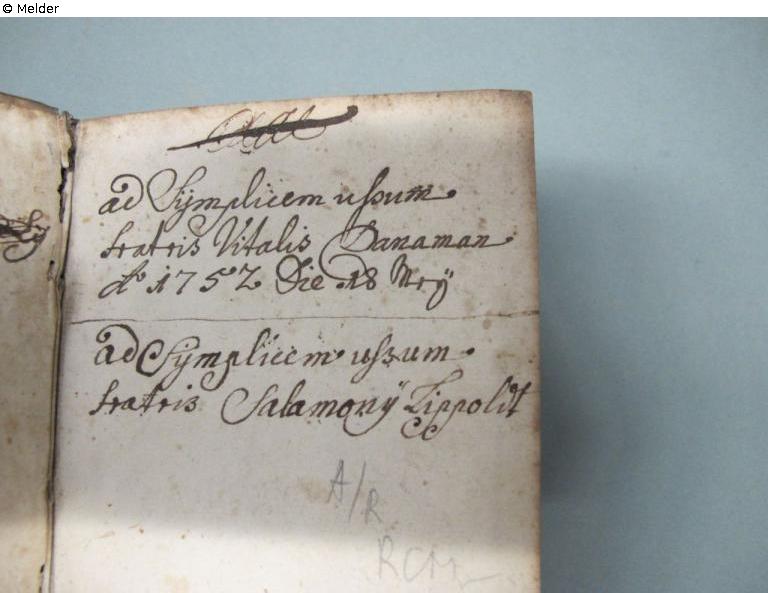 © Melder
ad Sÿmplicem ussum
fratris Vitalis Danaman
Aº 1752 Die 18 Meÿ
ad Sÿmplicem ussum
fratris Salamonÿ Lippolit
A/R
RCM